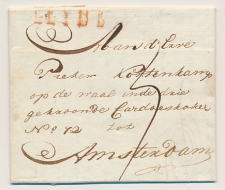 LEYDE
Aan d'Eere
Pieter Kottenkamp
op de waal inde drie
gekroonde Cardoeskoker
No 72 tot
Amsterdam